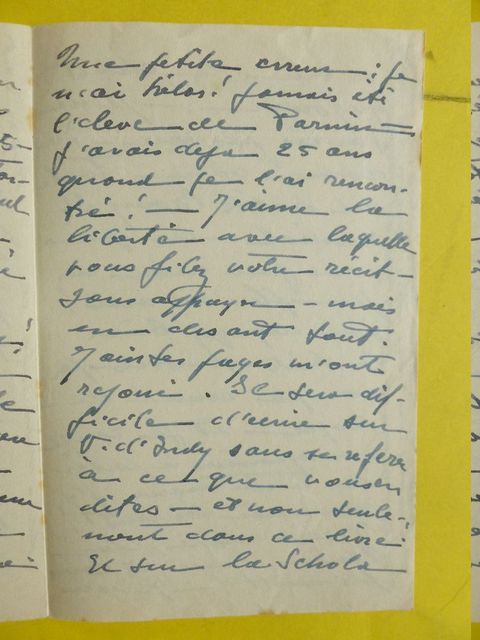 Une petite erreur : je
n'ai hélas ! jamais été
l'élève de
J'avais déjà 25 ans
quand je l'ai rencon-
tré ! — J'aime la
liberté avec laquelle
vous filez votre récit —
sans appuyer — mais
en disant tout.
Maintes pages m'ont
réjoui. Il sera dif-
ficile d'écrire sur
V. d'Indy sans se référer
à ce que vous en
dites — et non seule-
ment dans ce livre.
Et sur la Schola